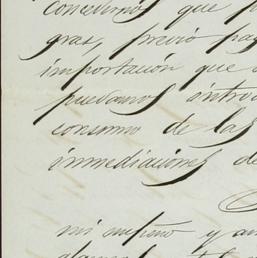 concedernos que p
gras, previo pag
importación que
puedamos introd
consumo de las
inmediaciones de
mi mismo y an